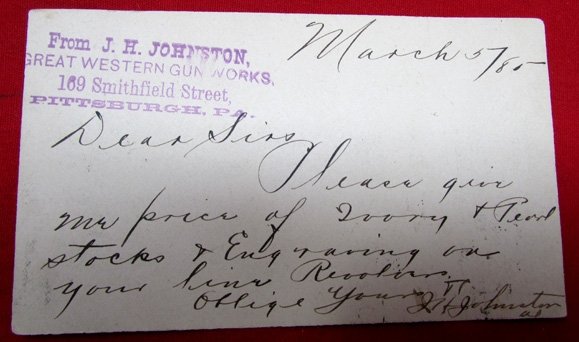 From J. H. JOHNSTON,
GREAT WESTERN GUN WORKS,
169 Smithfield Street,
PITTSBURGH, PA.
March 5/85
Dear Sirs
Please give
me price of Ivory & Pearl
stocks & Engraving on
your line Revolvers
Oblige Yours
J H Johnston